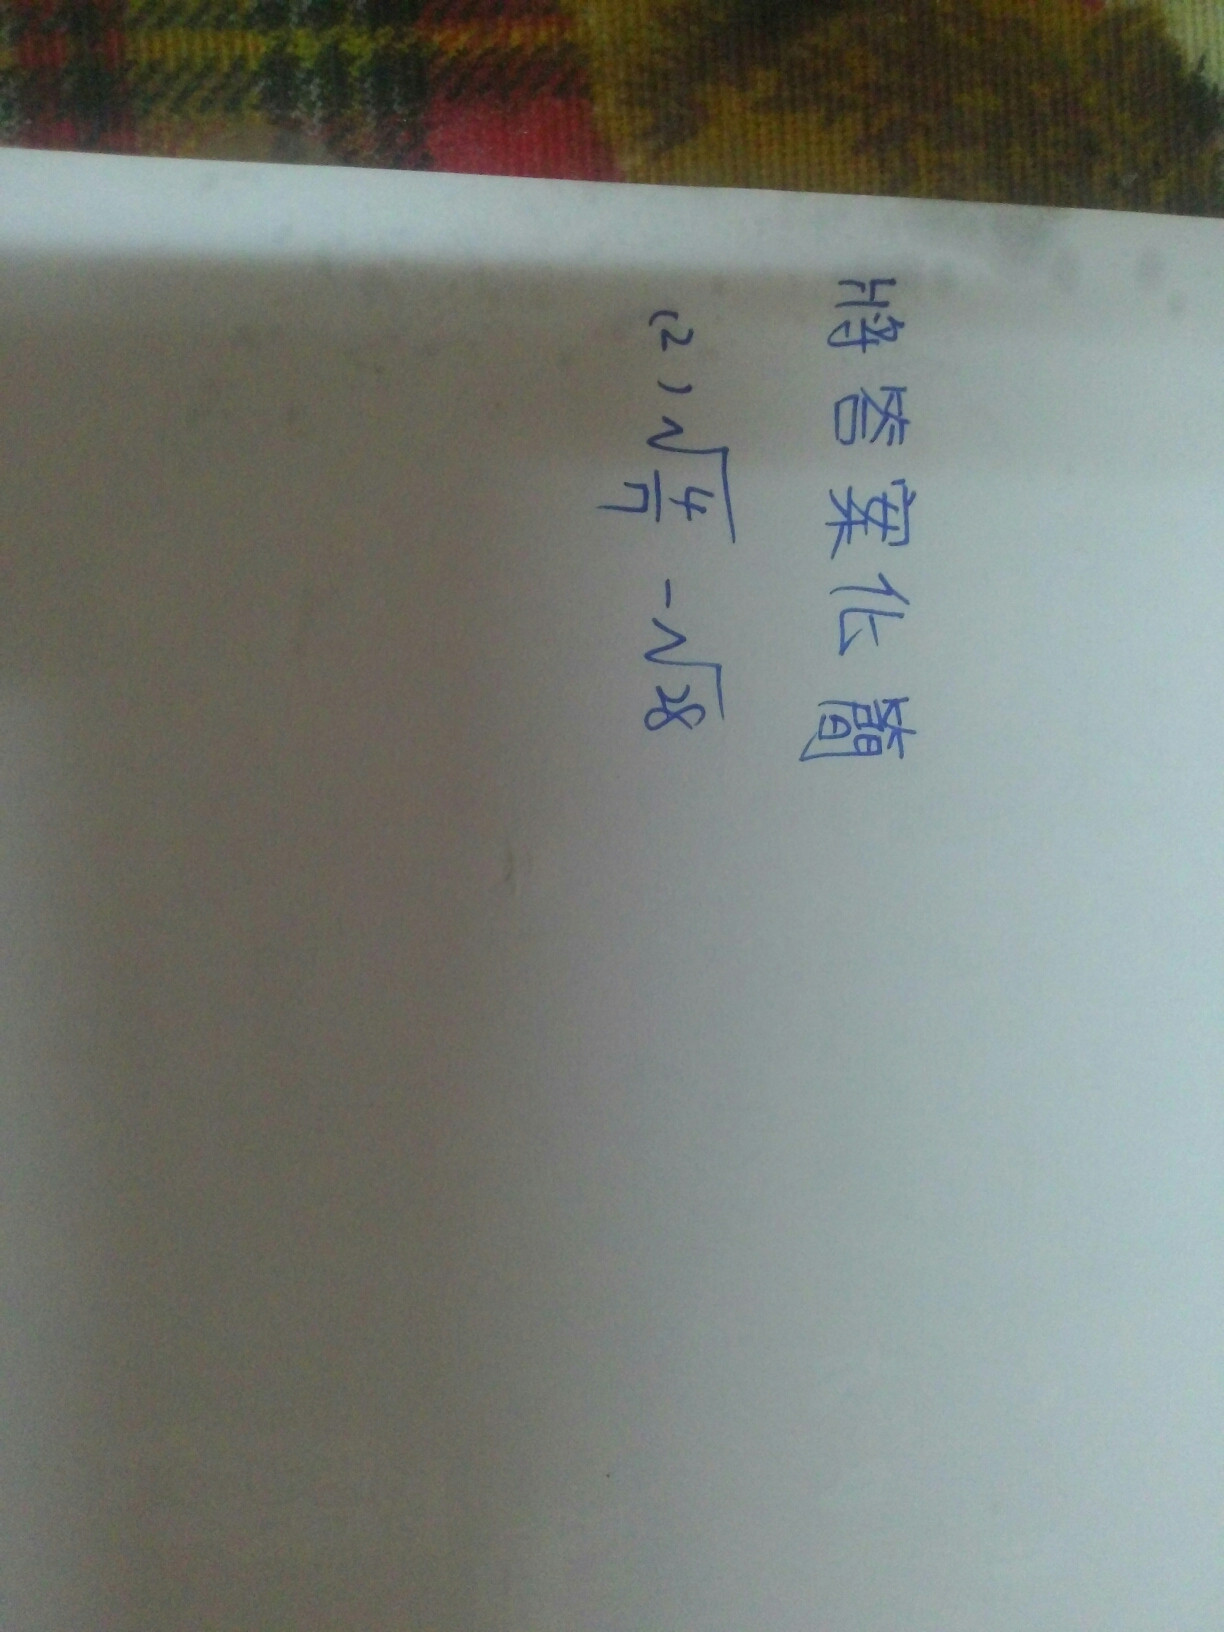 將答案化簡
(2) √(4/7) - √28